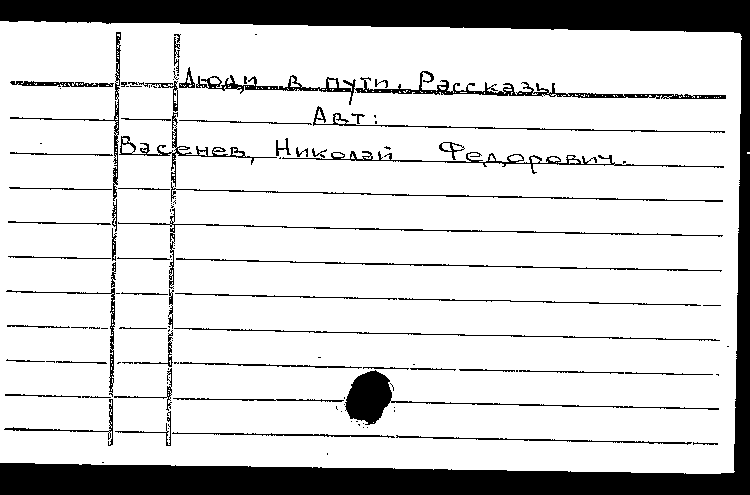 Люди в пути. Рассказы
Авт:
Васенев, Николай Федорович.